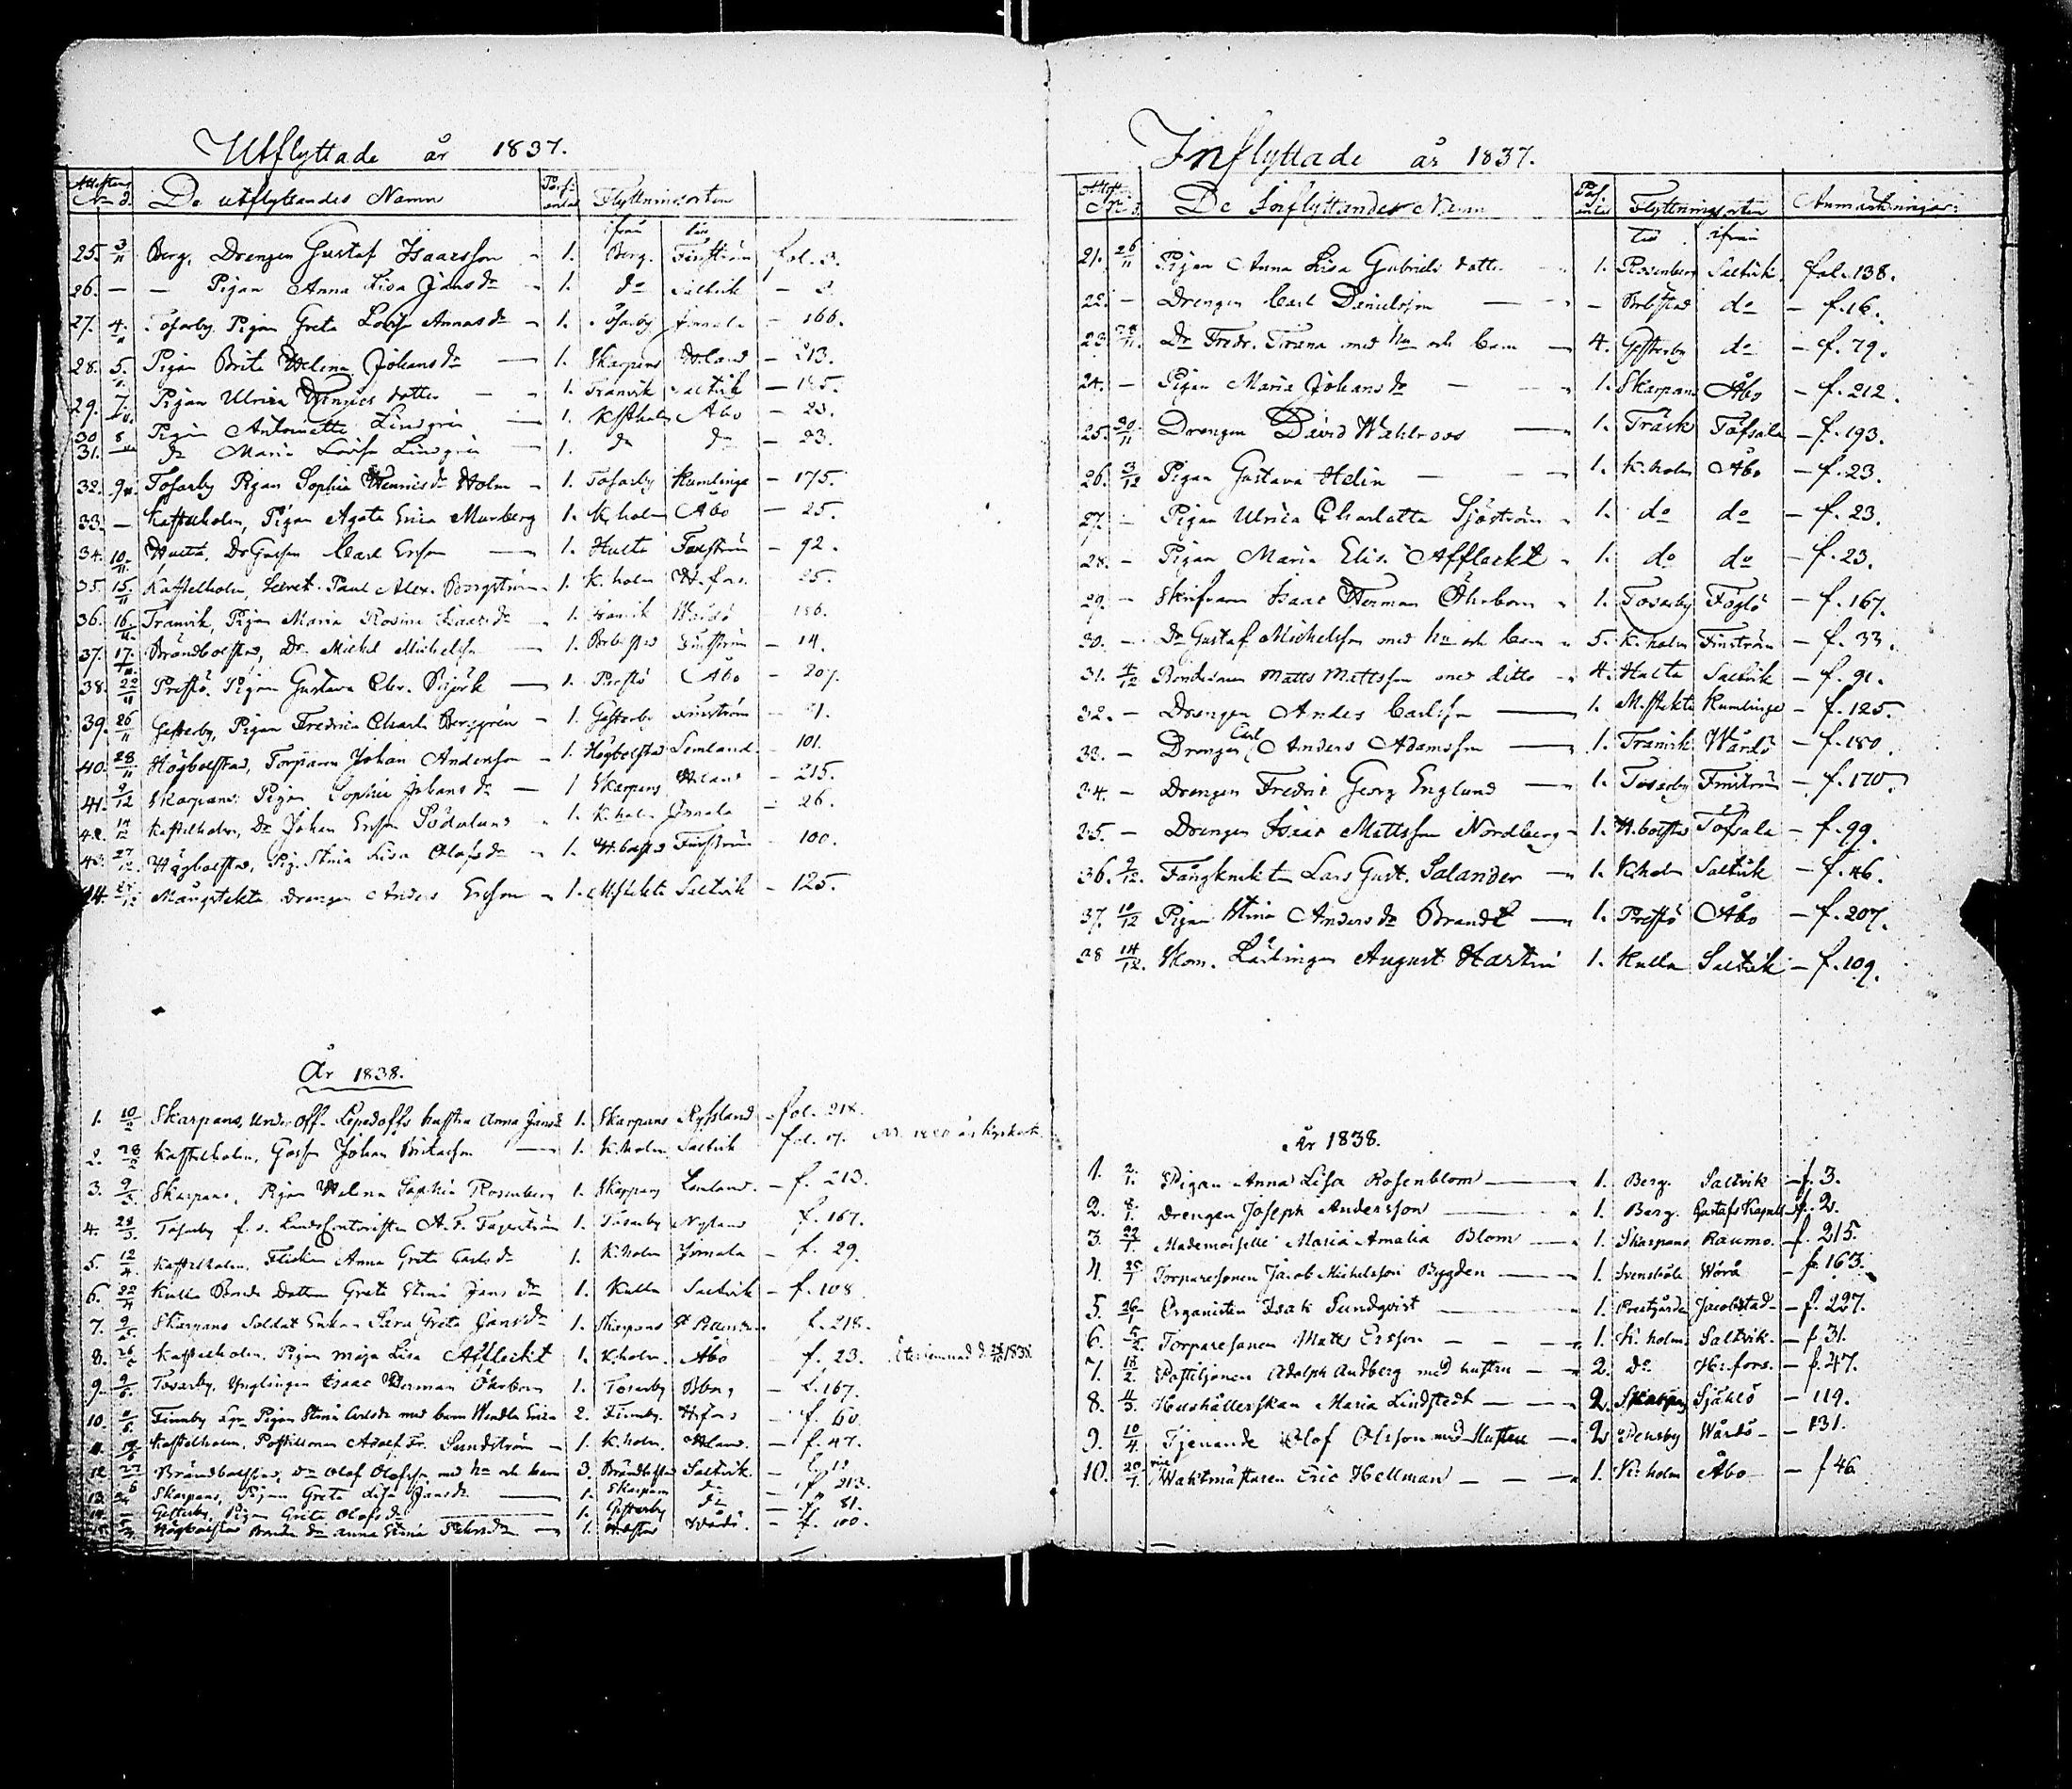 Utflyttade år 1837.
Attestens No d. De utflyttandes Namn Flyttningsorten
ifrån till
25. 3/11 Berg, Drengen Gustaf Isaacsson 1. Berg. Finström fol. 3.
26. — — Pigan Anna Lisa Jansdr 1. do Saltvik — 3.
27. 4/11 Tosarby Pigan Greta Lovisa Annasdr 1. Tosarby Jomala — 166.
28. 5/11 Pigan Brita Helena Johansdr — 1. Skarpans — 213.
29. 7/11 Pigan Ulrica Henricsdotter — 1. Tranvik Saltvik — 185.
30 8 Pigan Antoinette Lindgrén — 1. Kastelholm Åbo — 23.
31. — dr Maria Lovisa Lindgrén — 1. do do — 23.
32. 9/11 Tosarby Pigan Sophia Henricsdr Holm 1. Tosarby Kumlinge — 175.
33. — Kastelholm, Pigan Agata Erica Murberg 1. K.holm Åbo — 25.
34. 10/11 Hulta, Carl Ersson — 1. Hulta Finström — 92.
35. 15/11 Kastelholm, Secret. Paul Alex. Borgström 1. K.holm H.fors — 25.
36. 16/11 Tranvik, Pigan Maria Rosina Isaacsdr 1. Tranvik Wårdö 186.
37. 17/11 Brändbolstad, Dr. Michel Michelsson — 1. Finström — 14.
38. 22/11 Prestö. Pigan Gustava Chr. Björk — 1. Prestö Åbo — 207.
39. 26/11 Gesterby, Pigan Fredrica Charl. Berggrén 1. Gesterby Finström
40. 28/11 Högbolstad, Torparen Johan Andersson 1. Högbolstad Lemland. — 101.
41. 9/12 Skarpans. Pigan Sophia Johansdr — 1 Skarpans — 215.
42. 14/12 Kastelholm, Dr Johan Ersson Södolund 1. K.holm Jomala — 26.
43. 27/12 Högbolstad, Pig. Stina Lisa Olofsdr 1. H.bolstad Finström — 100.
44. Mångstekta Drengen Anders Ersson 1. M.stekta Saltvik — 125.
År 1838.
1. 10/2 Skarpans, Under Off. Lopadoffs hustru Anna Jansdr 1. Skarpans Ryssland — fol. 218.
2. 28/2 Kastelholm, Gossen Johan Britasson — 1. K.holm Saltvik fol. 17.
3. 9/3 Skarpans, Pigan Helena Sophia Rosenberg 1. Skarpans Lemland. — f. 213.
4. 28/3. Tosarby f.d. LandsContoristen A. F. Fagerström 1. Tosarby Nyland f. 167.
5. 12/4 Kastelholm, Flickan Anna Greta Carlsdr 1. K.holm Jomala — f. 29.
6. 22/4 Kulla Bonde Dottern Greta Stina Jansdr 1. Kulla Saltvik — f. 108
7. Skarpans Soldat Enkan Sara Greta Jansdr 1. Skarpans f. 218.
8. Kastelholm, Pigan Maja Lisa Affleckt 1. K.holm. Åbo — f. 23. 1838
9. Tosarby, Ynglingen Isaac Herman Öhrbom 1. Tosarby — f. 167.
10. Finnby Pigan Stina Carlsdr med barn Wendla Erica 2. Finnby. H.fors — f. 60.
11. Kastelholm, Postillionen Adolf Fr. Sundström 1. K.holm. — f. 47.
12. Brändbolstad, dr Olof Olofsson med hu och barn 3. Brändbolstad Saltvik.
13. Skarpans, Pigan Greta Lisa Jansdr — 1. Skarpans do — f. 213.
14. — Gesterby, Pigan Greta Olofsdr — 1. Gesterby do — f. 81.
15. Högbolstad Bonde dr Anna Stina 1. Wårdö. — f. 100.
Inflyttade år 1837.
De Inflyttandes Namn Flyttningsorten Anmärkningar:
till ifrån
21. 26/11 Pigan Anna Lisa Gabrielsdotter — 1. Rosenberg Saltvik. fol. 138.
22. — Drengen Carl Danielsson — do — f. 16.
23 28/11. Dr Fredr. Forena med hu och barn — 4. Gesterby do — f. 79.
24. — Pigan Maria Johansdr — 1. Skarpans Åbo — f. 212.
25. 30/11 Drengen David Wahlroos — 1. Träsk Töfsala — f. 193.
26. 3/12 Pigan Gustava Helin — 1. K.holm Åbo — f. 23.
27. — Pigan Ulrica Charlotta Sjöström 1. do do — f. 23.
28. — Pigan Maria Elis. Affleckt 1. do do — f. 23.
29. — Skrifvaren Isaac Herman Öhrbom 1. Tosarby Föglö — f. 167.
30. — Dr Gustaf Michelsson med hu och barn 5. K.holm Finström — f. 33.
31. 4/12 Bondesonen Matts Mattsson med ditto 4. Hulta Saltvik — f. 91.
32. — Drengen Anders Carlsson — 1. M.stekta Kumlinge — f. 125.
33. — Drengen Carl Anders Adamsson — 1. Tranvik Wårdö — f. 180.
34. — Drengen Fredric Georg Englund — 1. Tosarby Finström — f. 170
35. — Drengen Isaac Mattsson Nordberg — 1. H.bolstad Töfsala — f. 99.
36. 9/12. Fångknekten Lars Gust. Salander — 1. K:holm Saltvik — f. 46.
37. 10/12 Pigan Stina Andersdr Brandt — 1. Prestö Åbo — f. 207.
38 14/12. Skom. Lärlingen August Hartin 1. Kulla Saltvik — f. 109.
År 1838.
1. 2/1. Pigan Anna Lisa Rosenblom — 1. Berg. Saltvik — f. 3.
2. 8/1. Drengen Joseph Andersson — 1. Berg. Gustafs Kapell — f. 2.
3. 22/1. Mademoiselle Maria Amalia Blom — 1. Skarpans Raumo. — f. 215.
4. 25/1 Torparesonen Jacob Michelsson Bygden — 1. Svensböle Wörå — f. 163.
5. 26/1 Organisten Isak Sundqvist — 1. Prestgården Jacobstad — f. 227.
6. 5/2. Torparesonen Matts Ersson — 1. K:holm. Saltvik. — f 31.
7. 18/2. Postiljonen Adolph Audberg med hustru — 2. do. H:fors. — f. 47.
8. 4/3. Hushållerskan Maria Lindstedt — 2. Skarpans Själlö — 119.
9. 10/4 Tjenande Olof Olsson med Hustru — 2 Pensby Wårdö — 131.
10. 20/7. Waktmästaren Eric Hellman — 1. K:holm Åbo — f 46